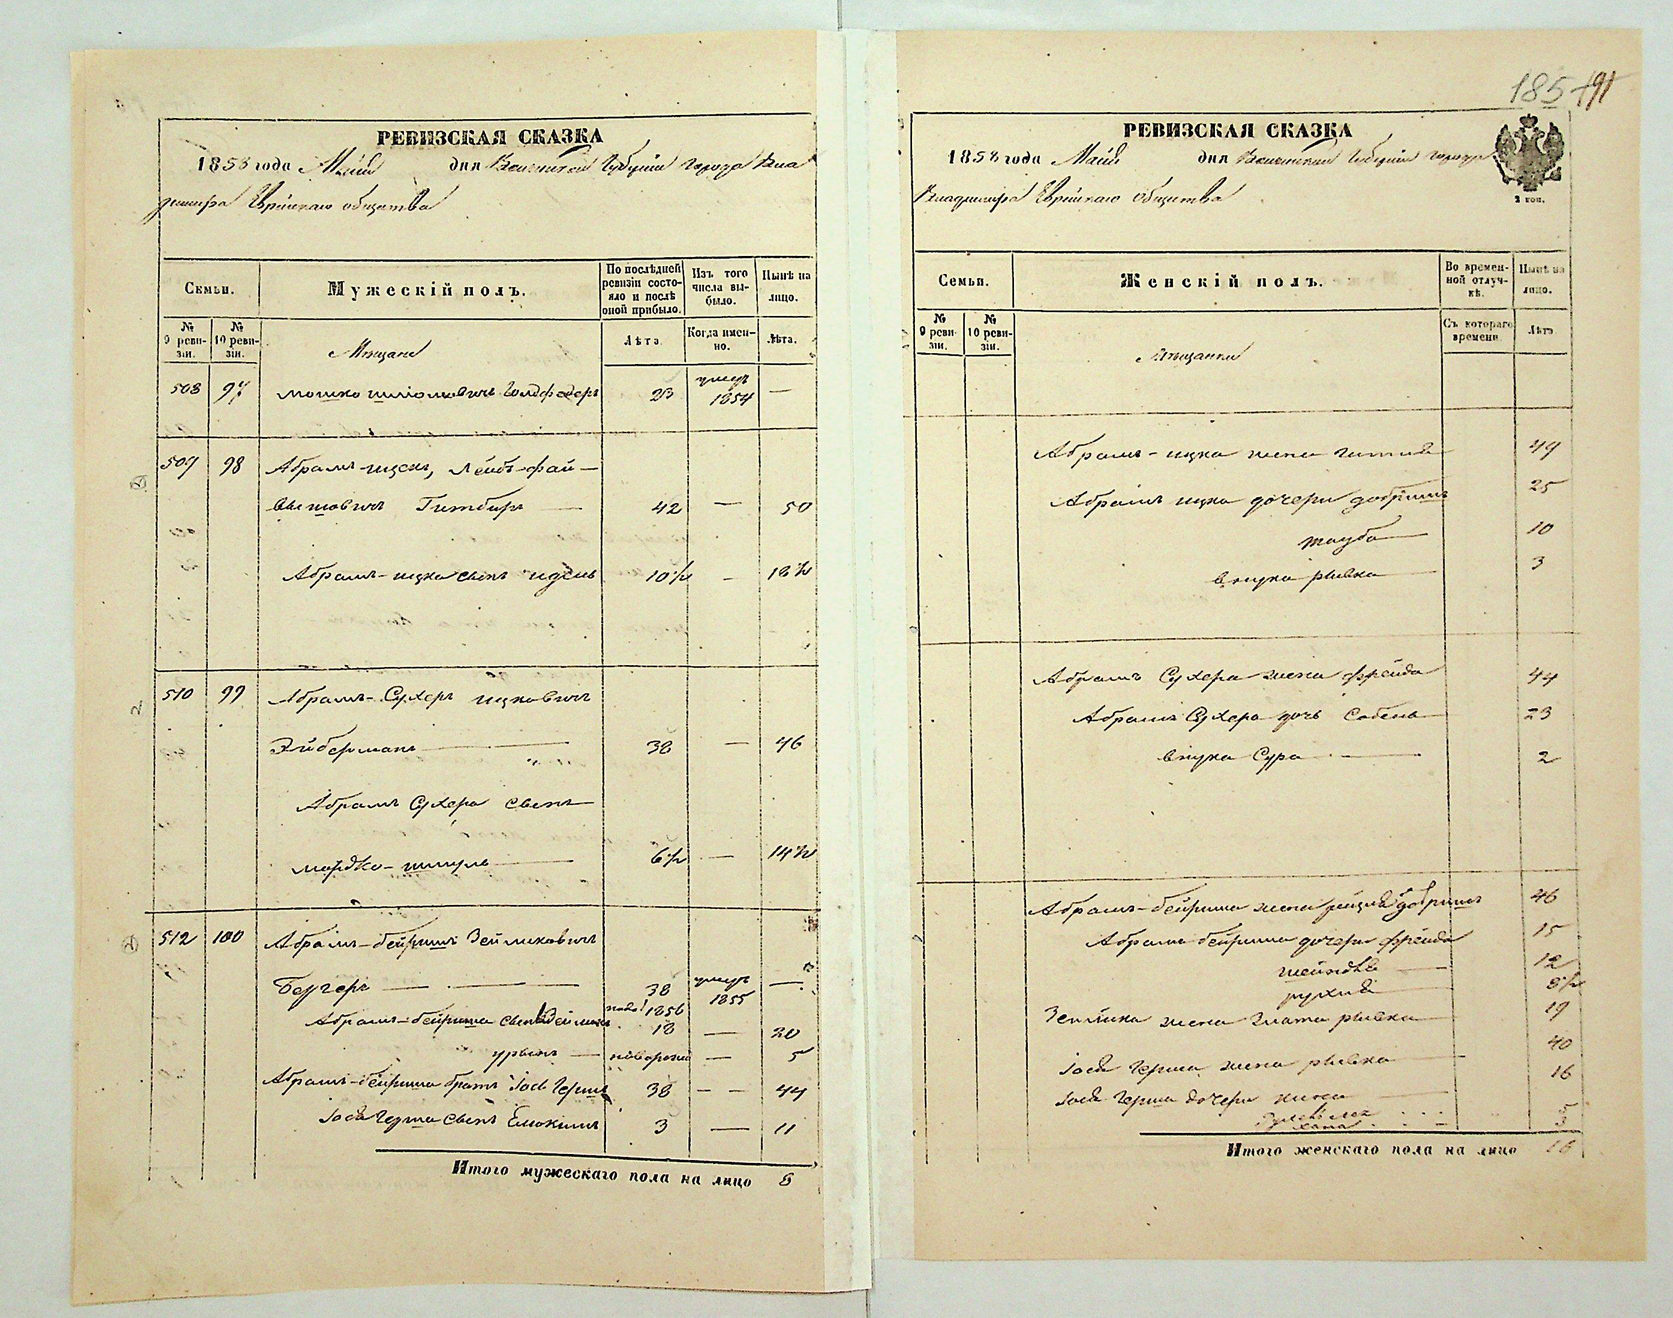 185 191
РЕВИЗСКАЯ СКАЗКА
1858 года Майя дня Волынской Губерніи города Вла
димира Еврейскаго общества
Семьи.
Мужескій полъ.
По послѣдней ревизіи состояло и послѣ оной прибыло.
Изъ того числа выбыло.
Нынѣ на лицо.
№ 9 ревизіи.
№ 10 ревизіи.
Мѣщане
Лѣта
Когда именно.
Лѣта.
508 97 Мошко Шліомовичъ Голдфедеръ 23 умеръ 1854 —
509 98 Абрамъ-Ицекъ, Лейбъ-Фай-
вишовичъ Гитберъ — 42 — 50
Абрамъ-Ицка сынъ 10½ — 18½
510 99 Абрамъ-Сухеръ Ицковичъ
Эйберманъ — 38 — 46
Абрамъ Сухера сынъ
Мордко-Шмуль — 6½ — 14½
512 100 Абрамъ-Бейришъ Зейликовичъ
Бергеръ — 38 умеръ 1855 —
Абрамъ-Бейриша сынъ Зейликъ 1856 18 — 20
— новорожд — 5
Абрамъ-Бейриша братъ Іось Гершъ 38 — 44
Іося Герша сынъ 3 — 11
Итого мужескаго пола на лицо 8
РЕВИЗСКАЯ СКАЗКА
1858 года Майя дня Волынской Губерніи города
Владимира Еврейскаго общества
2 коп.
Семьи.
Женскій полъ.
Во временной отлучкѣ.
Нынѣ на лицо.
№ 9 ревизіи.
№ 10 ревизіи.
Мѣщанки
Съ котораго времени
Лѣта
Абрамъ-Ицка жена Гитля 49
Абрамъ Ицка дочери Добришъ 25
Тауба — 10
внука Рывка — 3
Абрамъ Сухера жена Фрейда 44
Абрамъ Сухера дочь 23
внука Сура — 2
Абрамъ-Бейриша жена Добришъ 46
Абрамъ Бейриша дочери Фрейда 15
Шейндля — 12
Рухля — 8½
Зейлика жена Злата Рывка — 19
Іося Герша жена Рывка — 40
Іося Герша дочери — 16
5
Хана 3
Итого женскаго пола на лицо 16